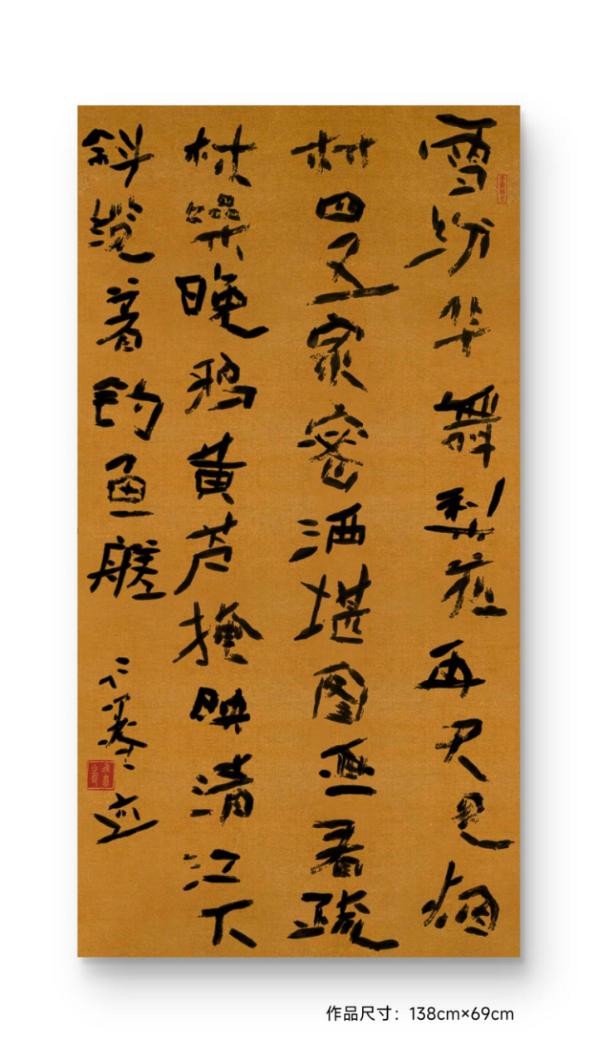 雪纷华舞梨花再不见烟
村四五家密洒堪图画看疏
林噪晚鸦黄芦掩映清江下
斜缆着钓鱼艖
作品尺寸：138cm×69cm